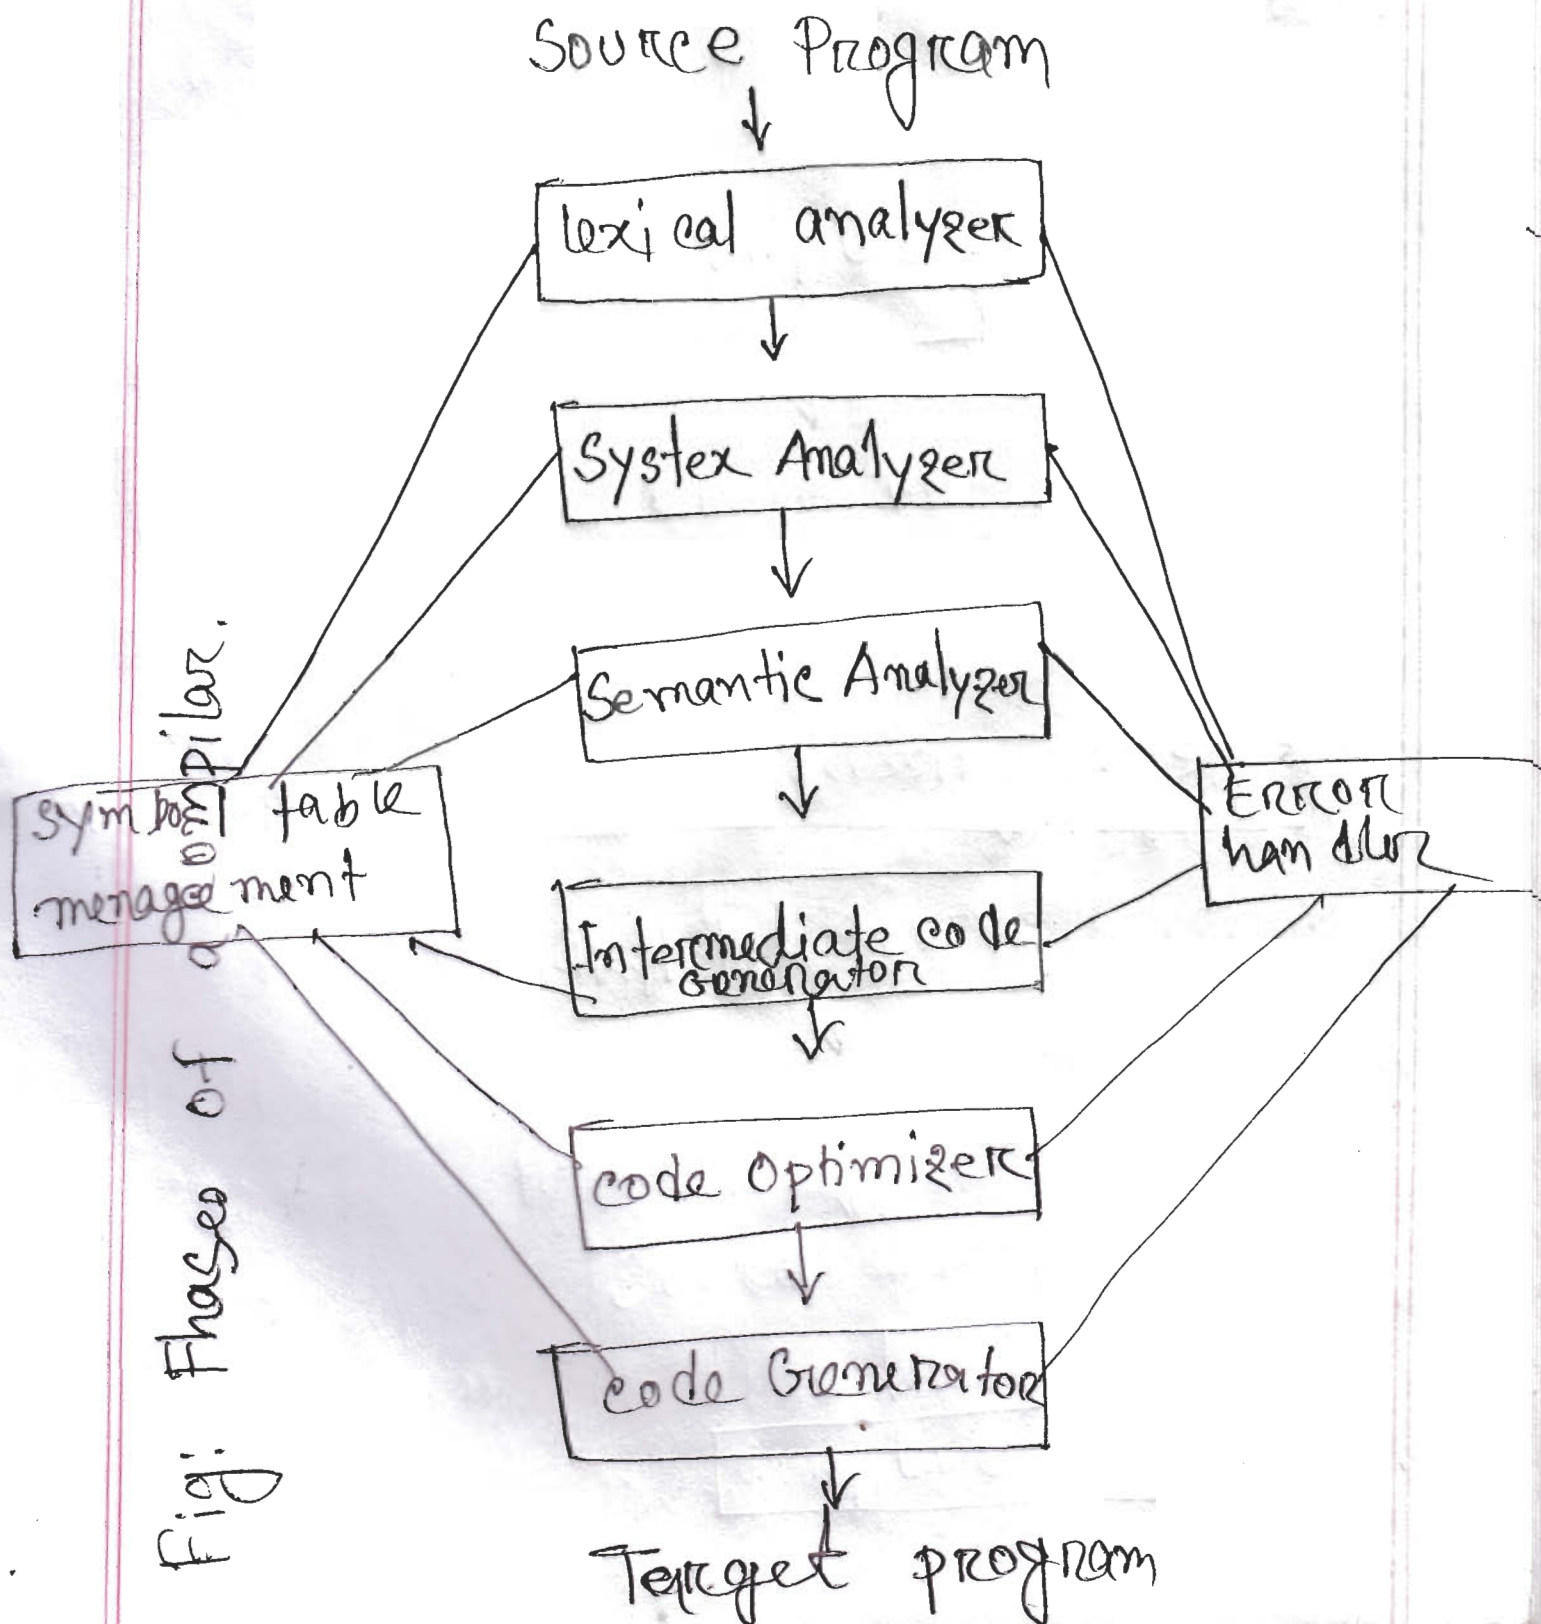 Source Program
lexical analyzer
Systex Analyzer
Semantic Analyzer
symbol table
menagement
Error
handler
Intermediate code
Generator
code Optimizer
code Generator
Terget program
Fig: Fhases of a compilar.